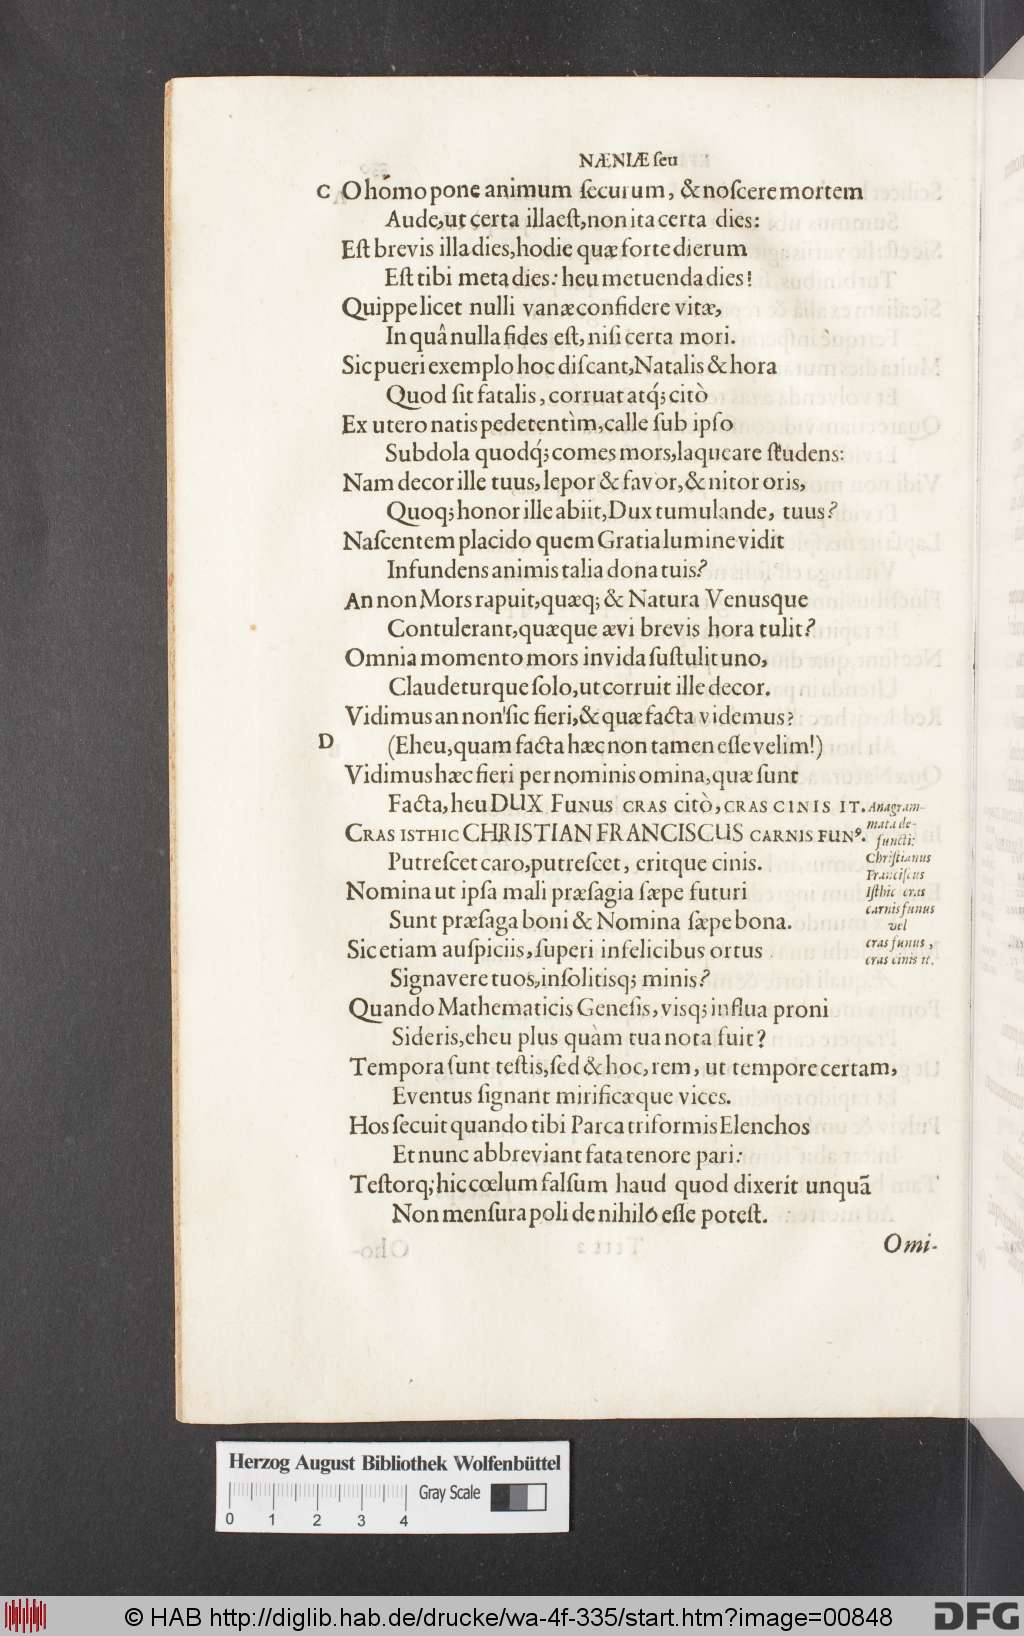 NÆNIÆ ſeu
C O homo pone animum ſecurum, & noſcere mortem
Aude, ut certa illa eſt, non ita certa dies:
Eſt brevis illa dies, hodie quæ forte dierum
Eſt tibi meta dies: heu metuenda dies!
Quippe licet nulli vanæ confidere vitæ,
In quâ nulla fides eſt, niſi certa mori.
Sic pueri exemplo hoc diſcant, Natalis & hora
Quod ſit fatalis, corruat atq́; citò
Ex utero natis pedetentìm, calle ſub ipſo
Subdola quodq́; comes mors, laqueare ſtudens:
Nam decor ille tuus, lepor & favor, & nitor oris,
Quoq; honor ille abiit, Dux tumulande, tuus?
Naſcentem placido quem Gratia lumine vidit
Infundens animis talia dona tuis?
An non Mors rapuit, quæq; & Natura Venusque
Contulerant, quæque ævi brevis hora tulit?
Omnia momento mors invida ſuſtulit uno,
Claudeturque ſolo, ut corruit ille decor.
Vidimus an non ſic fieri, & quæ facta videmus?
D (Eheu, quam facta hæc non tamen eſſe velim!)
Vidimus hæc fieri per nominis omina, quæ ſunt
Facta, heu DUX FUNUS CRAS citò, CRAS CINIS IT.
CRAS ISTHIC CHRISTIAN FRANCISCUS CARNIS FUNꝰ.
Putreſcet caro, putreſcet, eritque cinis.
Nomina ut ipſa mali præſagia ſæpe futuri
Sunt præſaga boni & Nomina ſæpe bona.
Sic etiam auſpiciis, ſuperi infelicibus ortus
Signavere tuos, inſolitisq; minis?
Quando Mathematicis Geneſis, visq; influa proni
Sideris, eheu plus quàm tua nota fuit?
Tempora ſunt teſtis, ſed & hoc, rem, ut tempore certam,
Eventus ſignant mirificæque vices.
Hos ſecuit quando tibi Parca triformis Elenchos
Et nunc abbreviant fata tenore pari:
Teſtorq; hic cœlum falſum haud quod dixerit unquā
Non menſura poli de nihilo eſſe poteſt.
Omi-
Anagram-
mata de-
functi:
Chriſtianus
Franciſcus
Iſthic cras
carnis funus
vel
cras funus,
cras cinis it.
Herzog August Bibliothek Wolfenbüttel
Gray Scale
0 1 2 3 4
© HAB http://diglib.hab.de/drucke/wa-4f-335/start.htm?image=00848
DFG